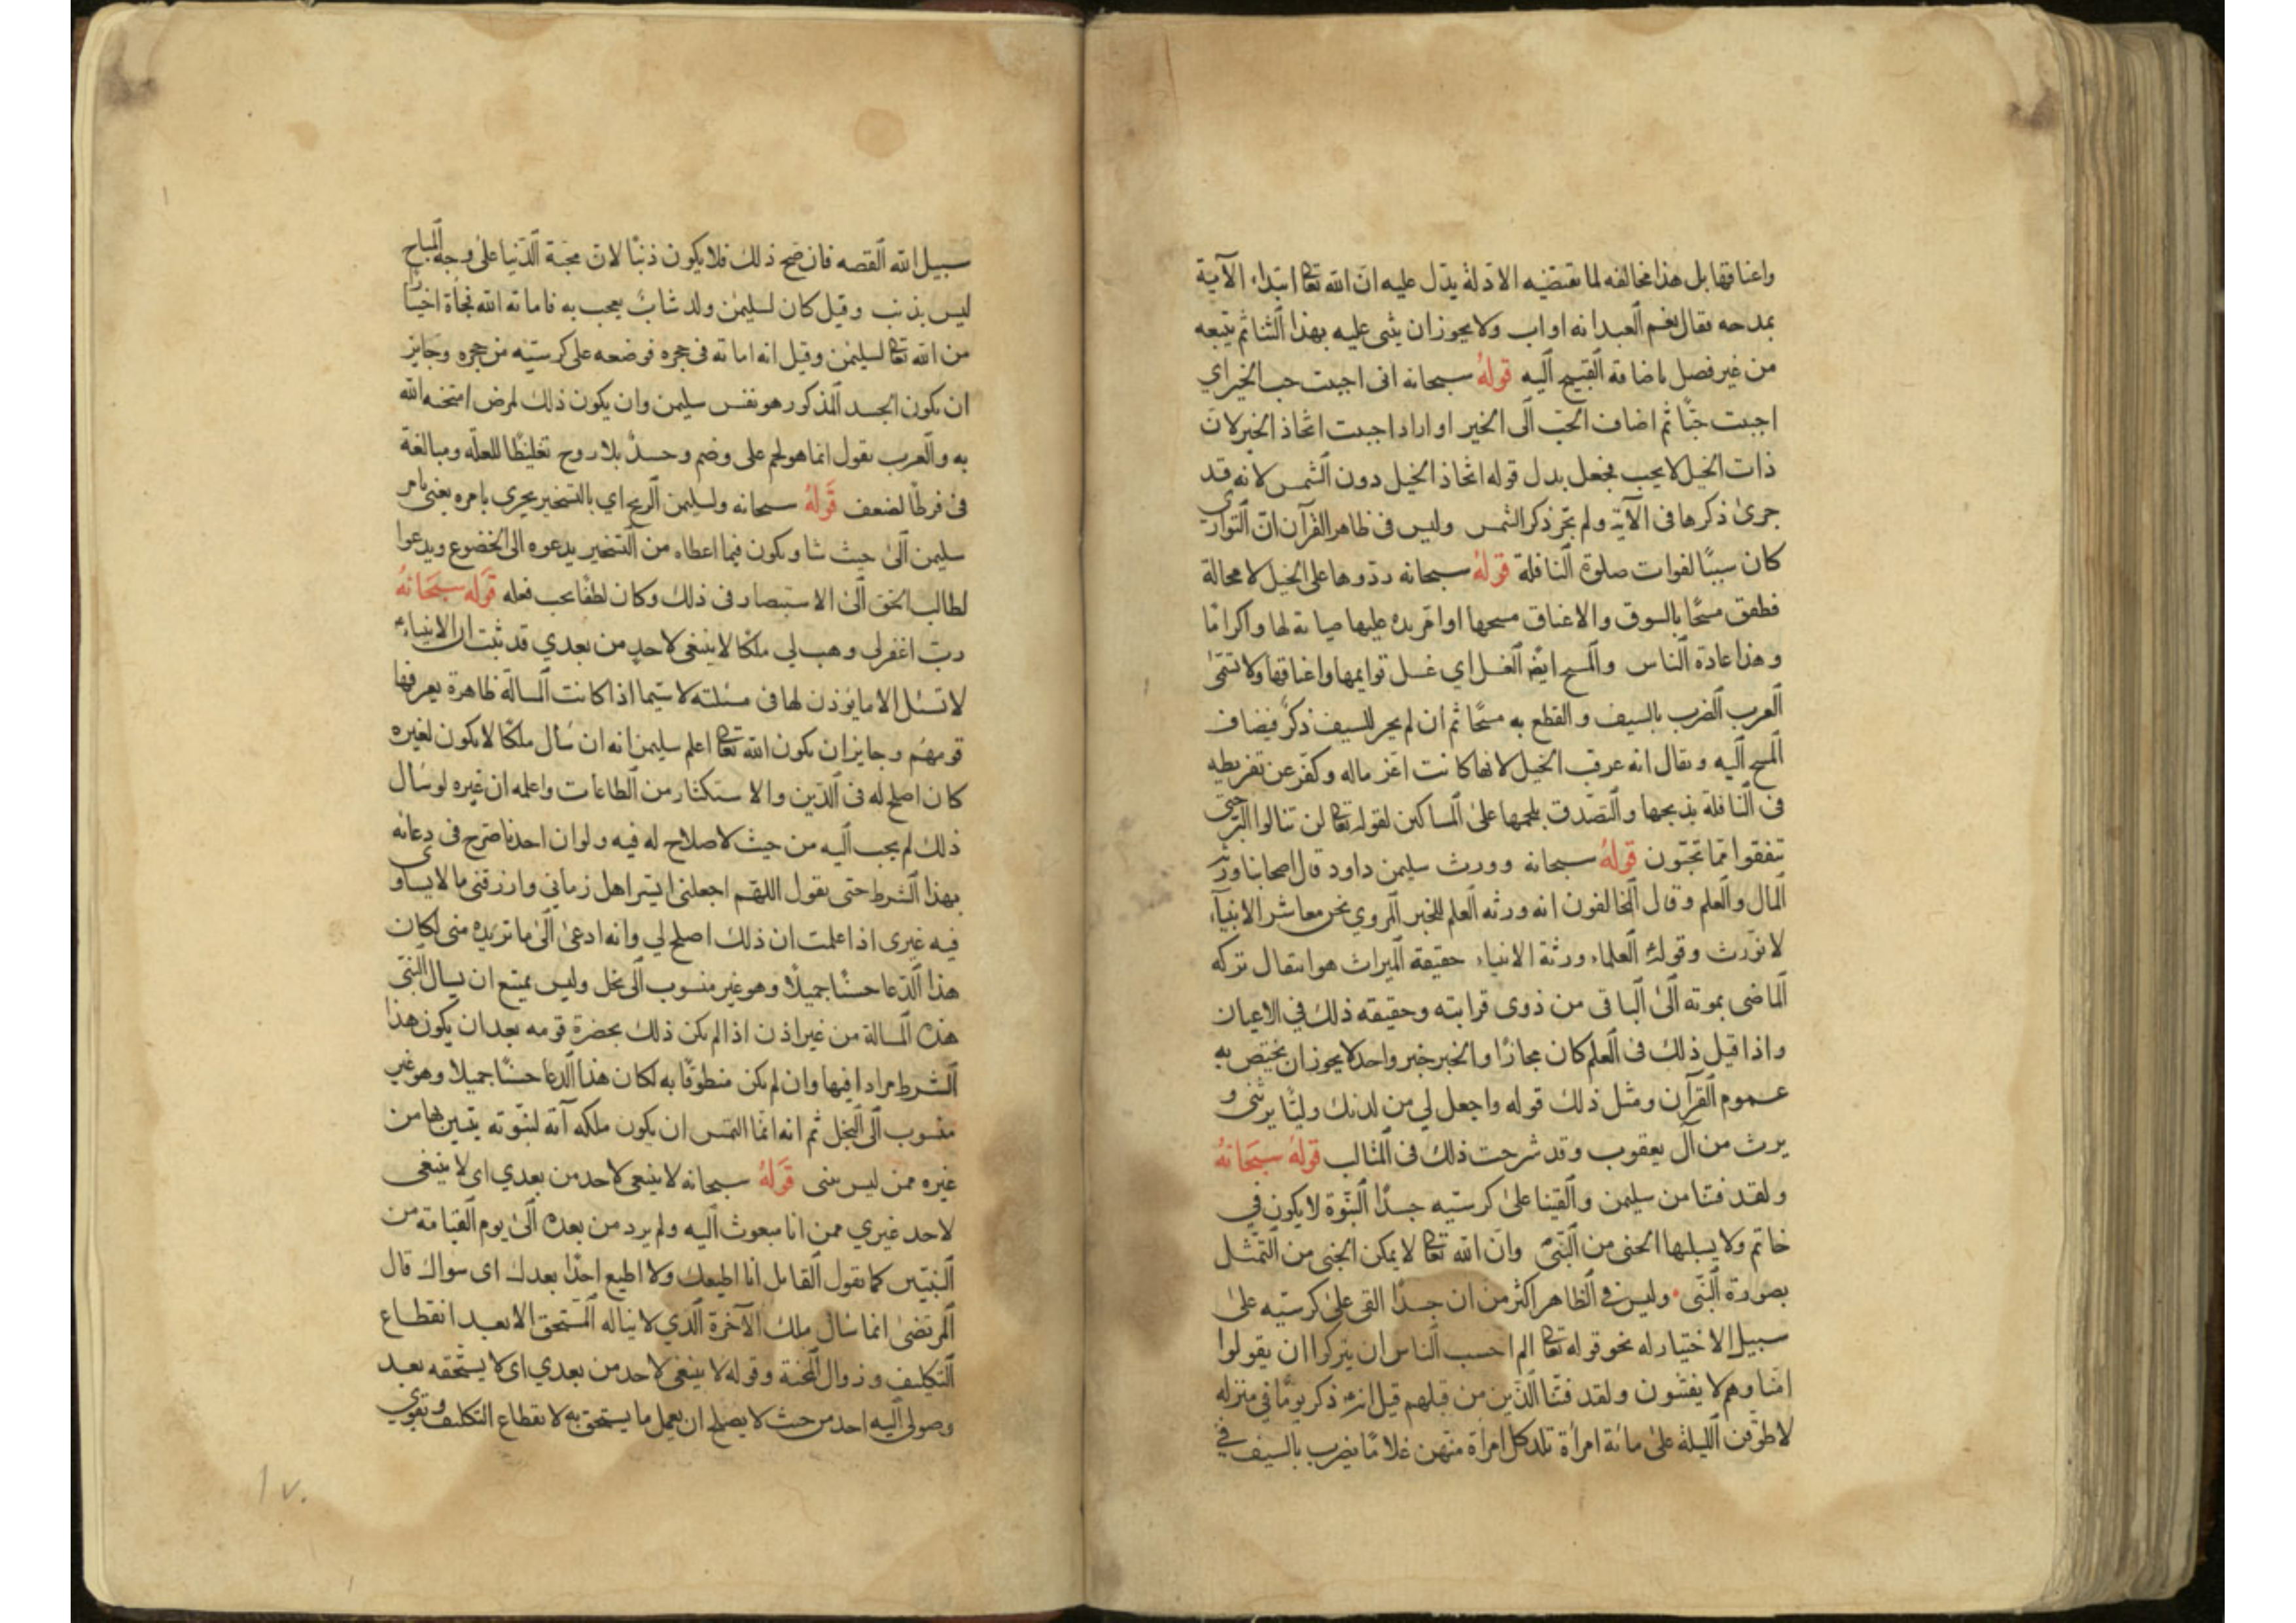 واعناقها بل هذا مخالفه لما تقتضيه الادلة يدل عليه ان الله تعا ابتداء الآية
بمدحه فقال نعم العبد انه اواب ولا يجوز ان يثنى عليه بهذا الثنا ثم يتبعه
من غير فصل باضافة القبيح اليه قوله سبحانه انى احببت حب الخير اي
احببت حبًّا ثم اضاف الحب الى الخير او اراد احببت اتخاذ الخير لان
ذات الخيل لا يحب فجعل بدل قوله اتخاذ الخيل دون الشمس لانه قد
جرى ذكرها فى الآية ولم يجر ذكر الشمس وليس فى ظاهر القرآن ان التوارى
كان سببًا لفوات صلوة النافلة قوله سبحانه ردّوها على الخيل لا محالة
فطفق مسحًا بالسوق والاعناق مسحها او امرّ يده عليها صيانة لها واكرامًا
وهذا عادة الناس والمسح ايضا الغسل اي غسل قوايمها واعناقها ولا تسمّى
العرب الضرب بالسيف والقطع به مسحًا ثم ان لم يجر للسيف ذكر فيضاف
المسح اليه ويقال انه عرقب الخيل لانها كانت اعز ماله وكفّر عن تفريطه
فى النافلة بذبحها والتصدق بلحمها على المساكين لقوله تعا لن تنالوا البر حتى
تنفقوا مما تحبّون قوله سبحانه وورث سليمن داود قال اصحابنا ورث
المال والعلم وقال المخالفون انه ورثه العلم للخبر المروي نحن معاشر الانبيآء
لا نورث وقوله العلماء ورثة الانبياء حقيقة الميراث هو انتقال تركه
الماضى بموته الى الباقى من ذوى قرابته وحقيقه ذلك في الاعيان
واذا قيل ذلك فى العلم كان مجازًا والخبر خبر واحد لا يجوز ان يختص به
عموم القرآن ومثل ذلك قوله واجعل لي من لدنك وليًّا يرثنى و
يرث من آل يعقوب وقد شرحت ذلك فى المثالب قوله سبحانه
ولقد فتنا من سليمن والقينا على كرسيه جسدًا النبّوة لا يكون في
خاتم ولا يسلبها الجنى من النبى وان الله تعا لا يمكن الجنى من التمثل
بصورة النبى وليس في الظاهر اكثر من ان جسدًا القى على كرسيه على
سبيل الاختيار له نحو قوله تعا الم احسب الناس ان يتركوا ان يقولوا
امنا وهم لا يفتنون ولقد فتنا الذين من قبلهم قيل انه ذكر يومًا في منزله
لاطوفن الليلة على مائة امرأة تلد كل امرأة منهن غلامًا يضرب بالسيف في
سبيل الله القصه فان صح ذلك فلا يكون ذنبًا لان محبة الدنيا على وجه المباح
ليس بذنب وقيل كان لسليمن ولد شابٌ يعجب به فاماته الله فجأة
من الله تعا لسليمن وقيل انه اماته فى حجره فوضعه على كرسيه من حجره وجايز
ان يكون الجسد المذكور هو نفس سليمن وان يكون ذلك لمرض امتحنه الله
به والعرب تقول انما هو لحم على وضم وجسدٌ بلا روح تغليظًا للعلّه ومبالغة
فى فرط الضعف قوله سبحانه ولسليمن الريح اي بالتسخير يجرى بامره يعنى بامر
سليمن الى حيث شا ويكون فيما اعطاه من التسخير يدعوه الى الخضوع ويدعوا
لطالب الحق الى الاستبصار فى ذلك وكان لطفًا يجب فعله قوله سبحانه
ربّ اغفر لى وهب لي ملكًا لا ينبغى لاحدٍ من بعدي قد ثبت ان الانبياء
لا تسئل الا ما يؤذن لها فى مسئلته لا سيّما اذا كانت المسالة ظاهرة يعرفها
قومهم وجايز ان يكون الله تعا اعلم سليمن انه ان سأل ملكًا لا يكون لغيره
كان اصلح له فى الدين والاستكثار من الطاعات واعلمه ان غيره لو سأل
ذلك لم يجب اليه من حيث لا صلاح له فيه ولو ان احدنا صرّح فى دعائه
بهذا الشرط حتى يقول اللهم اجعلنى ايسر اهل زماني وارزقنى ما لا يساوى
فيه غيرى اذا علمت ان ذلك اصلح لي وانه ادعى الى ما تريده منى لكان
هذا الدعا حسنًا جميلًا وهو غير منسوب الى بخل وليس يمتنع ان يسال النبى
هذه المسالة من غير اذن اذا لم يكن ذلك بحضرة قومه بعد ان يكون هذا
الشرط مرادا فيها وان لم يكن منطوقًا به لكان هذا الدعا حسنًا جميلا وهو غير
منسوب الى البخل ثم انه انما التمس ان يكون ملكه آية لنبوّته يتبين بها من
غيره ممن ليس بنبى قوله سبحانه لا ينبغى لاحد من بعدي اى لا ينبغى
لاحد غيري ممن انا مبعوث اليه ولم يرد من بعده الى يوم القيامة من
النبيين كما تقول القايل انا اطيعك ولا اطيع احدًا بعدك اى سواك قال
المرتضى انما سأل ملك الآخرة الذي لا يناله المستحق الا بعد انقطاع
التكليف وزوال المحنة وقوله لا ينبغى لاحد من بعدي اى لا يستحقه بعد
وصولى اليه احد من حيث لا يصلح ان يعمل ما يستحق به لانقطاع التكليف وتقوى
١٧٠